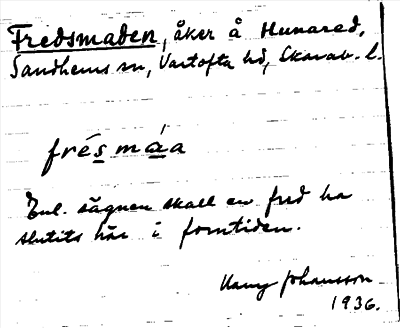 Fredsmaden, åker å Hunared,
Sandhems sn, Vartofta hd, Skarab. l.
frésmáa
Enl. sägnen skall en fred ha
slutits här i forntiden.
Harry Johansson
1936.